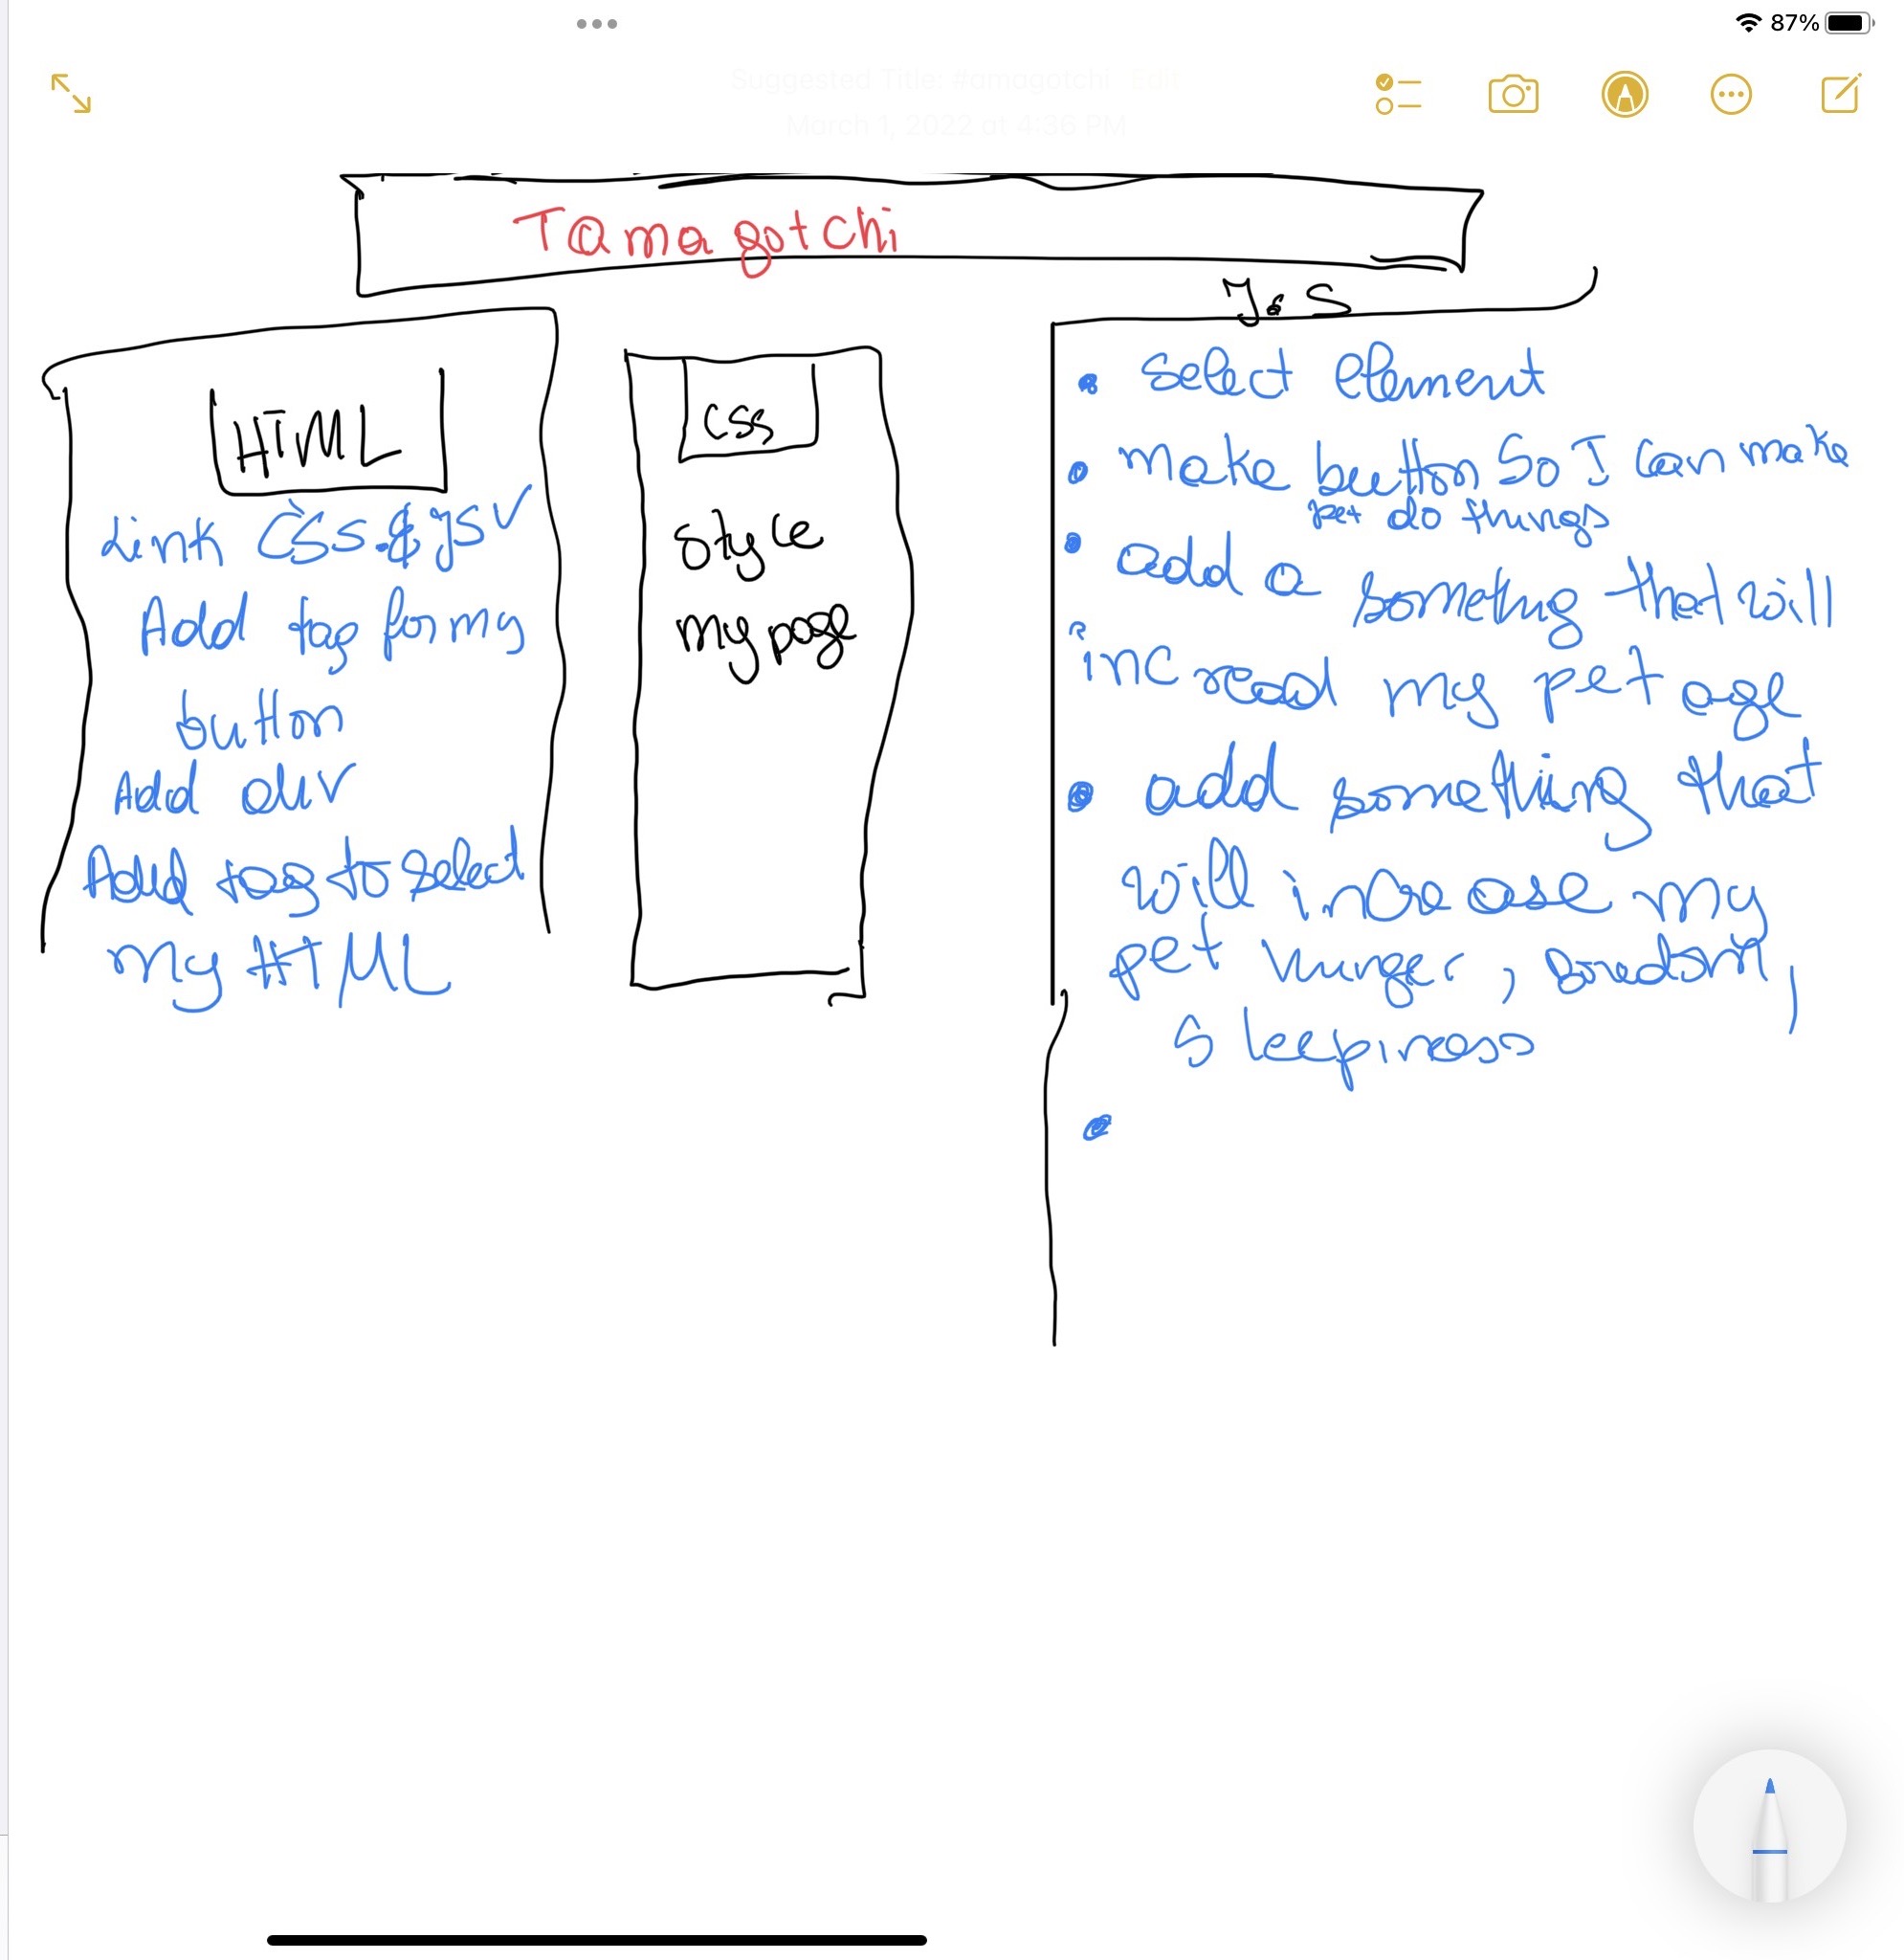 87%
Suggested Title: #amagotchi Edit
March 1, 2022 at 4:36 PM
Tamagotchi
HTML
Link CSS & JS
Add tag for my
button
Add div
Add tag to select
my HTML
CSS
style
my page
J.S
• Select element
• Make button So I can make
pet do things
• add a something that will
incread my pet age
• add something that
will increase my
pet hunger, Boredom,
Sleepiness
•